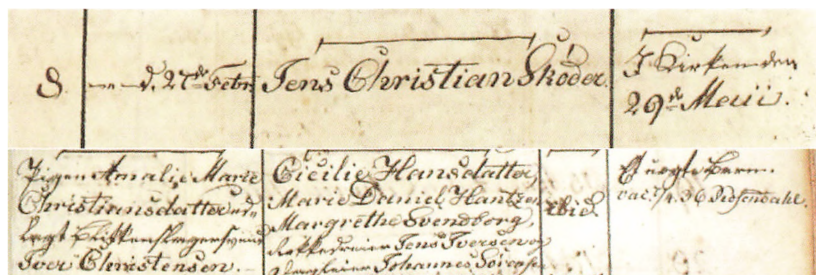 8. — d. 27de Febr. Jens Christian Sköder. I Kirken den
29de Maii.
Pigen Amalie Marie
Christiansdatter ud-
lagt Blikkenslagersvend
Iver Christensen.
Cicilie Hansdatter,
Marie Daniel Hantzen
Margrethe Svendberg,
Jens Iversen og
Johannes Sörensen
ibid.
Et uægte Barn.
vac. 36